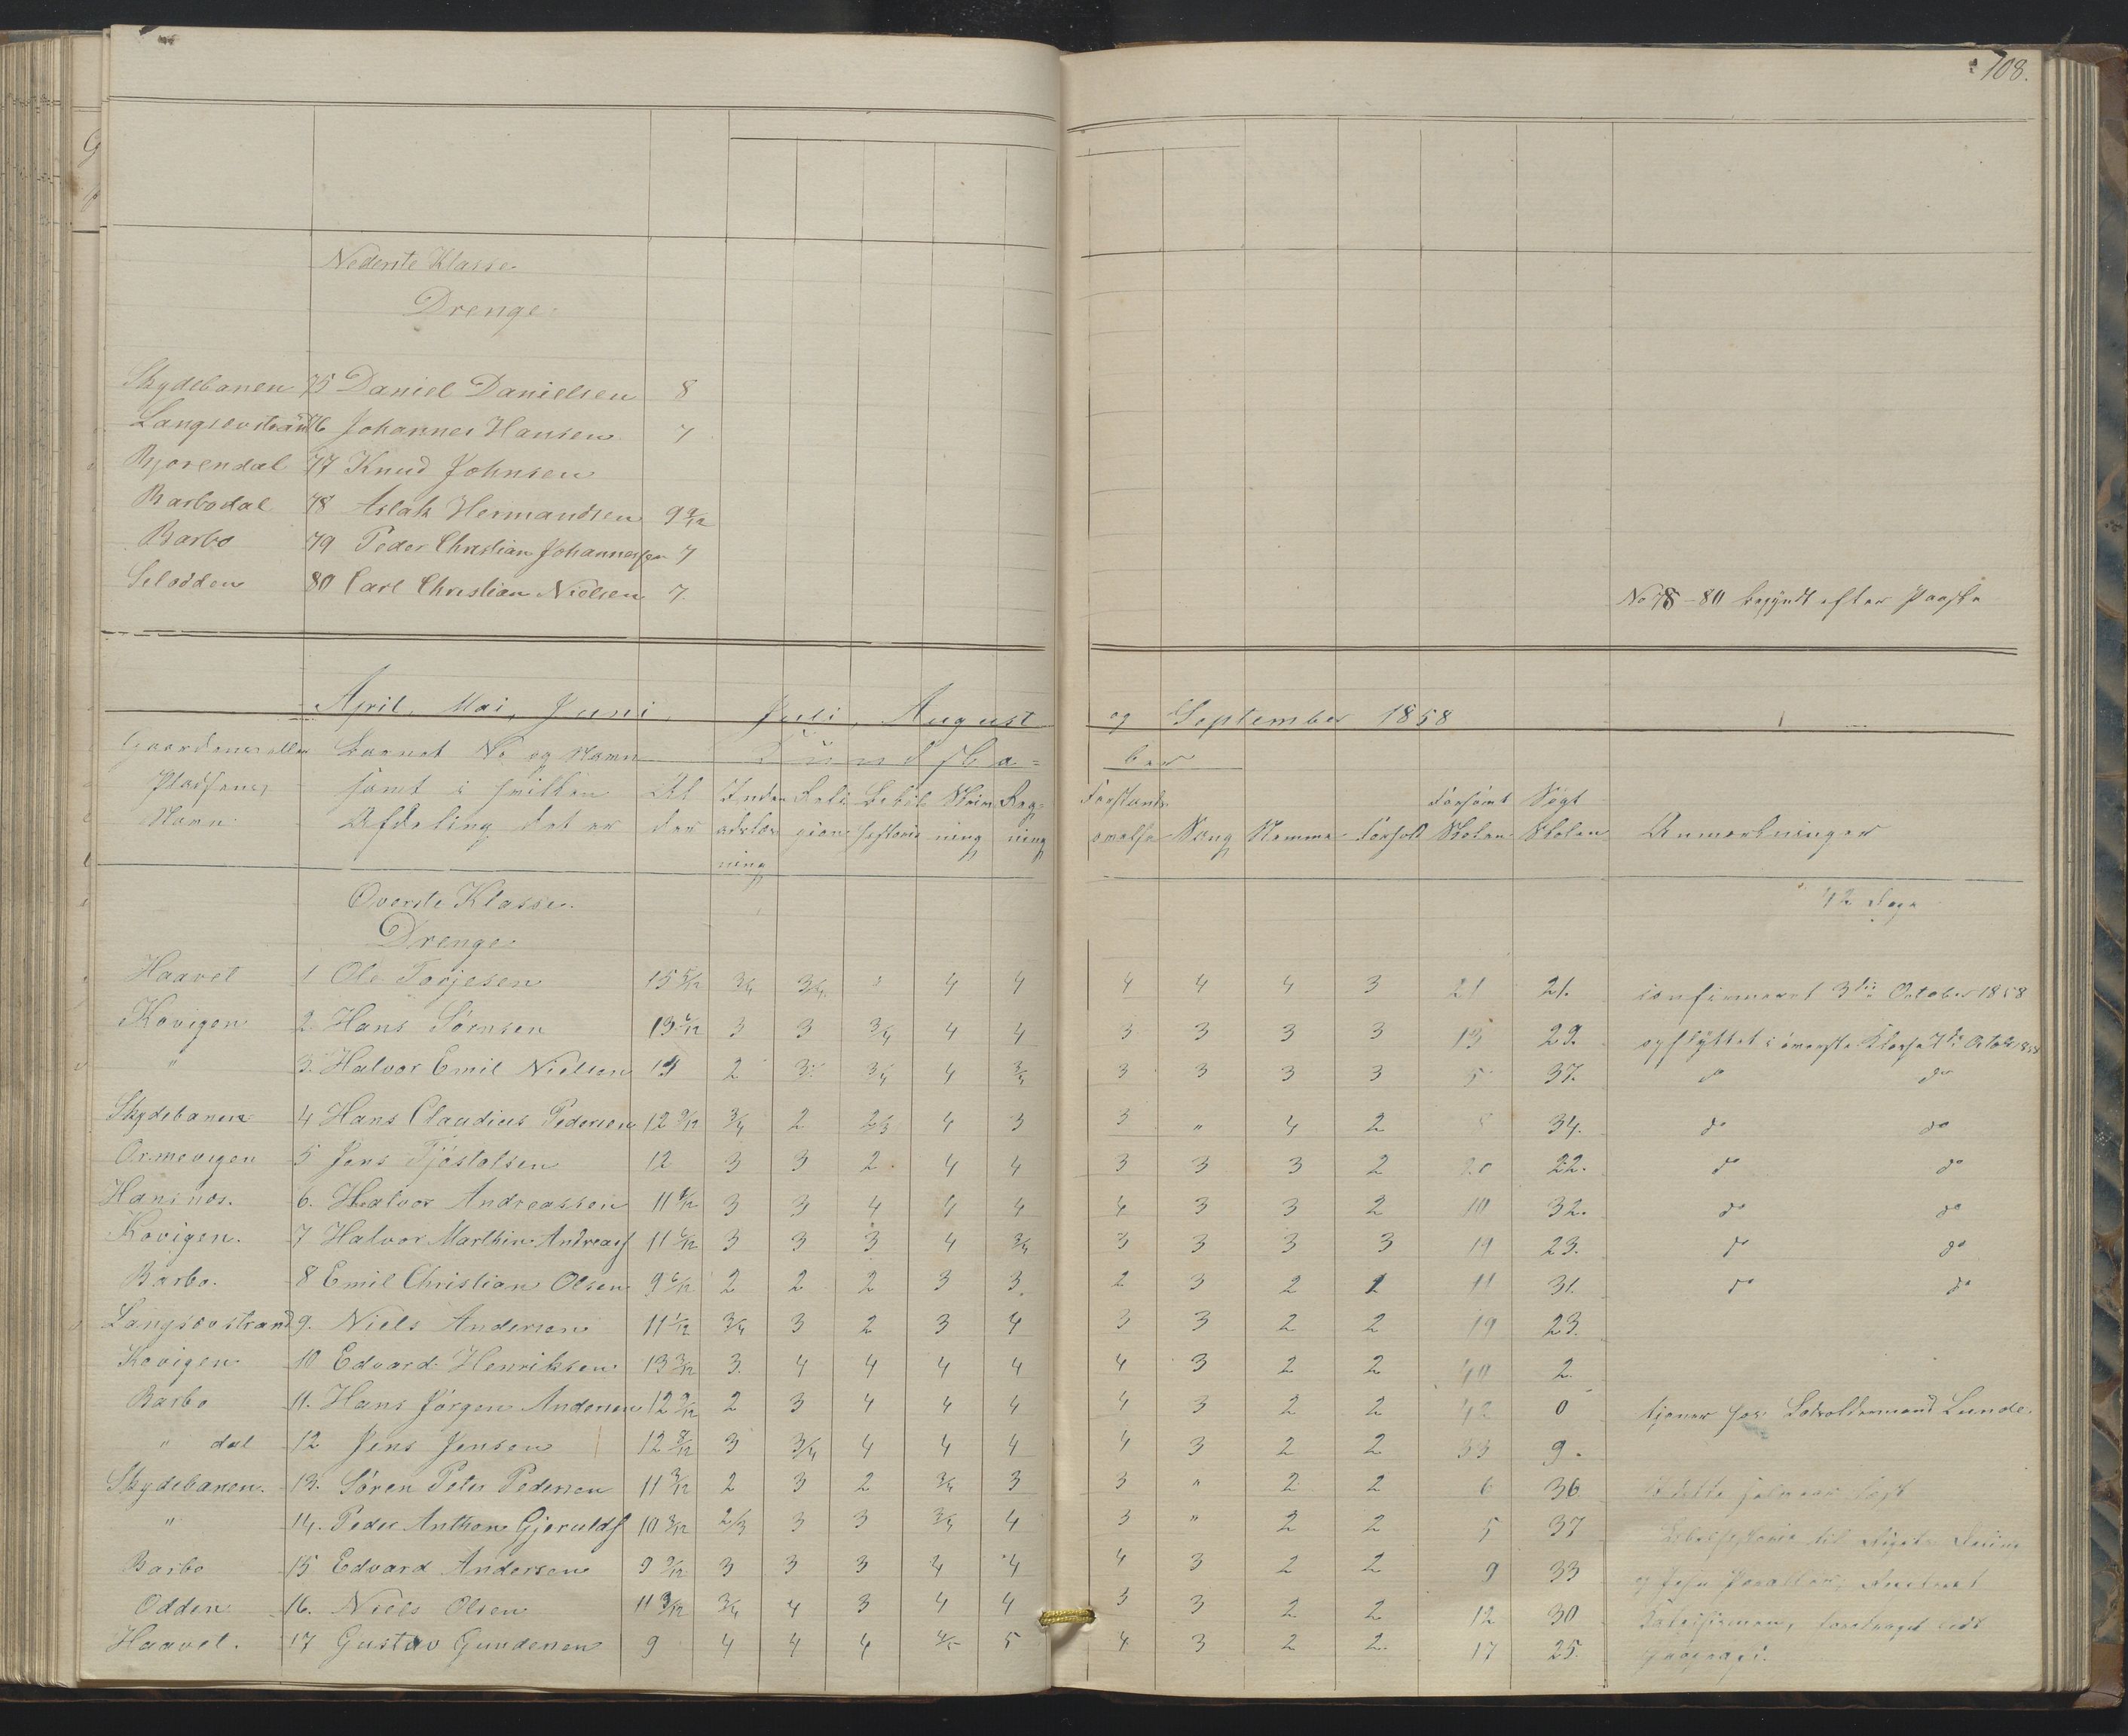 108.
Nederste Klasse
Drenge
Skydebanen 75 Daniel Danielsen 8
Langsøvstrand 76 Johannes Hansen 7
Bjorendal 77 Knud Johnsen
Barbodal 78 Aslak Hermandsen 9 9/12
Barbo 79 Peder Christian Johannessen 7
Selodden 80 Carl Christian Nielsen 7. No 78-80 begyndt efter Paaske
April. Mai, Juni Juli, August og September 1858
Gaardens eller Barnets No og Navn Kundska= ber
Pladsens, samt i hvilken Al Inden Reli Bibel Skriv Reg= Forstands Forsømt Søgt
Navn Afdeling det er der adslæs gion historie ning ning øvelse Sang Stemme Forhold Skolen Skolen Anmerkninger
ning
Overste Klasse. 42 Dage
Drenge
Haavet 1 Ole Torjesen 15 5/12 3/4 3/4 3 4 4 4 4 4 3 21 21. confirmeret 3die October 1858
Kovigen 2. Hans Sörnsen 13 6/12 3 3 3/4 4 4 3 3 3 3 13 29. opflyttet i överste Klasse 7de Octob 1858
" 3. Halvor Emil Nielsen 14 2 3 3/4 4 3/4 3 3 3 3 5 37. do do
Skydebanen 4 Hans Claudius Pedersen 12 9/12 3/4 2 2/3 4 3 3 " 4 2 8 34. do do
Ormevigen 5 Jens Tjöstolsen 12 3 3 2 4 4 3 3 3 2 20 22. do do
Hansnes. 6. Halvor Andreassen 11 9/12 3 3 4 4 4 4 3 3 2 10 32. do do
Kovigen. 7 Halvor Marthin Andreass 11 6/12 3 3 3 4 3/4 3 3 3 3 19 23. do do
Barbo. 8 Emil Christian Olsen 9 6/12 2 2 2 3 3. 2 3 2 2 11 31. do do
Langsøvstrand 9. Niels Andersen 11 1/12 3/4 3 2 3 4 3 3 2 2 19 23.
Kovigen 10 Edvard Henriksen 13 3/12 3. 4 4 4 4 4 3 2 2 40 2.
Barbo 11. Hans Jörgen Andersen 12 9/12 2 3 4 4 4 4 3 2 2 42 0 tjener hos Lodsoldermand Lunde.
" dal 12 Jens Jensen 12 8/12 3 3/4 4 4 4 4 3 2 2 33 9.
Skydebanen. 13. Sören Peter Pedersen 11 3/12 2 3 2 3/4 3 3 " 2 2 6 36 I dette halvaar læst
" 14. Peder Anthon Gjeruldss 10 8/12 2/3 3 3 3/4 4 3 " 2 2 5 37 Bibelhistorie til
Barbo 15 Edvard Andersen 9 9/12 3 3 3 4 4 4 3 2 2 9 33 og Jesu
Odden 16. Niels Olsen 11 9/12 3/4 4 3 4 4 3 3 2 2 12 30
Haavet. 17 Gustav Gundersen 9 4 4 4 4/5 5 4 3 2 2. 17 25. Geografi.